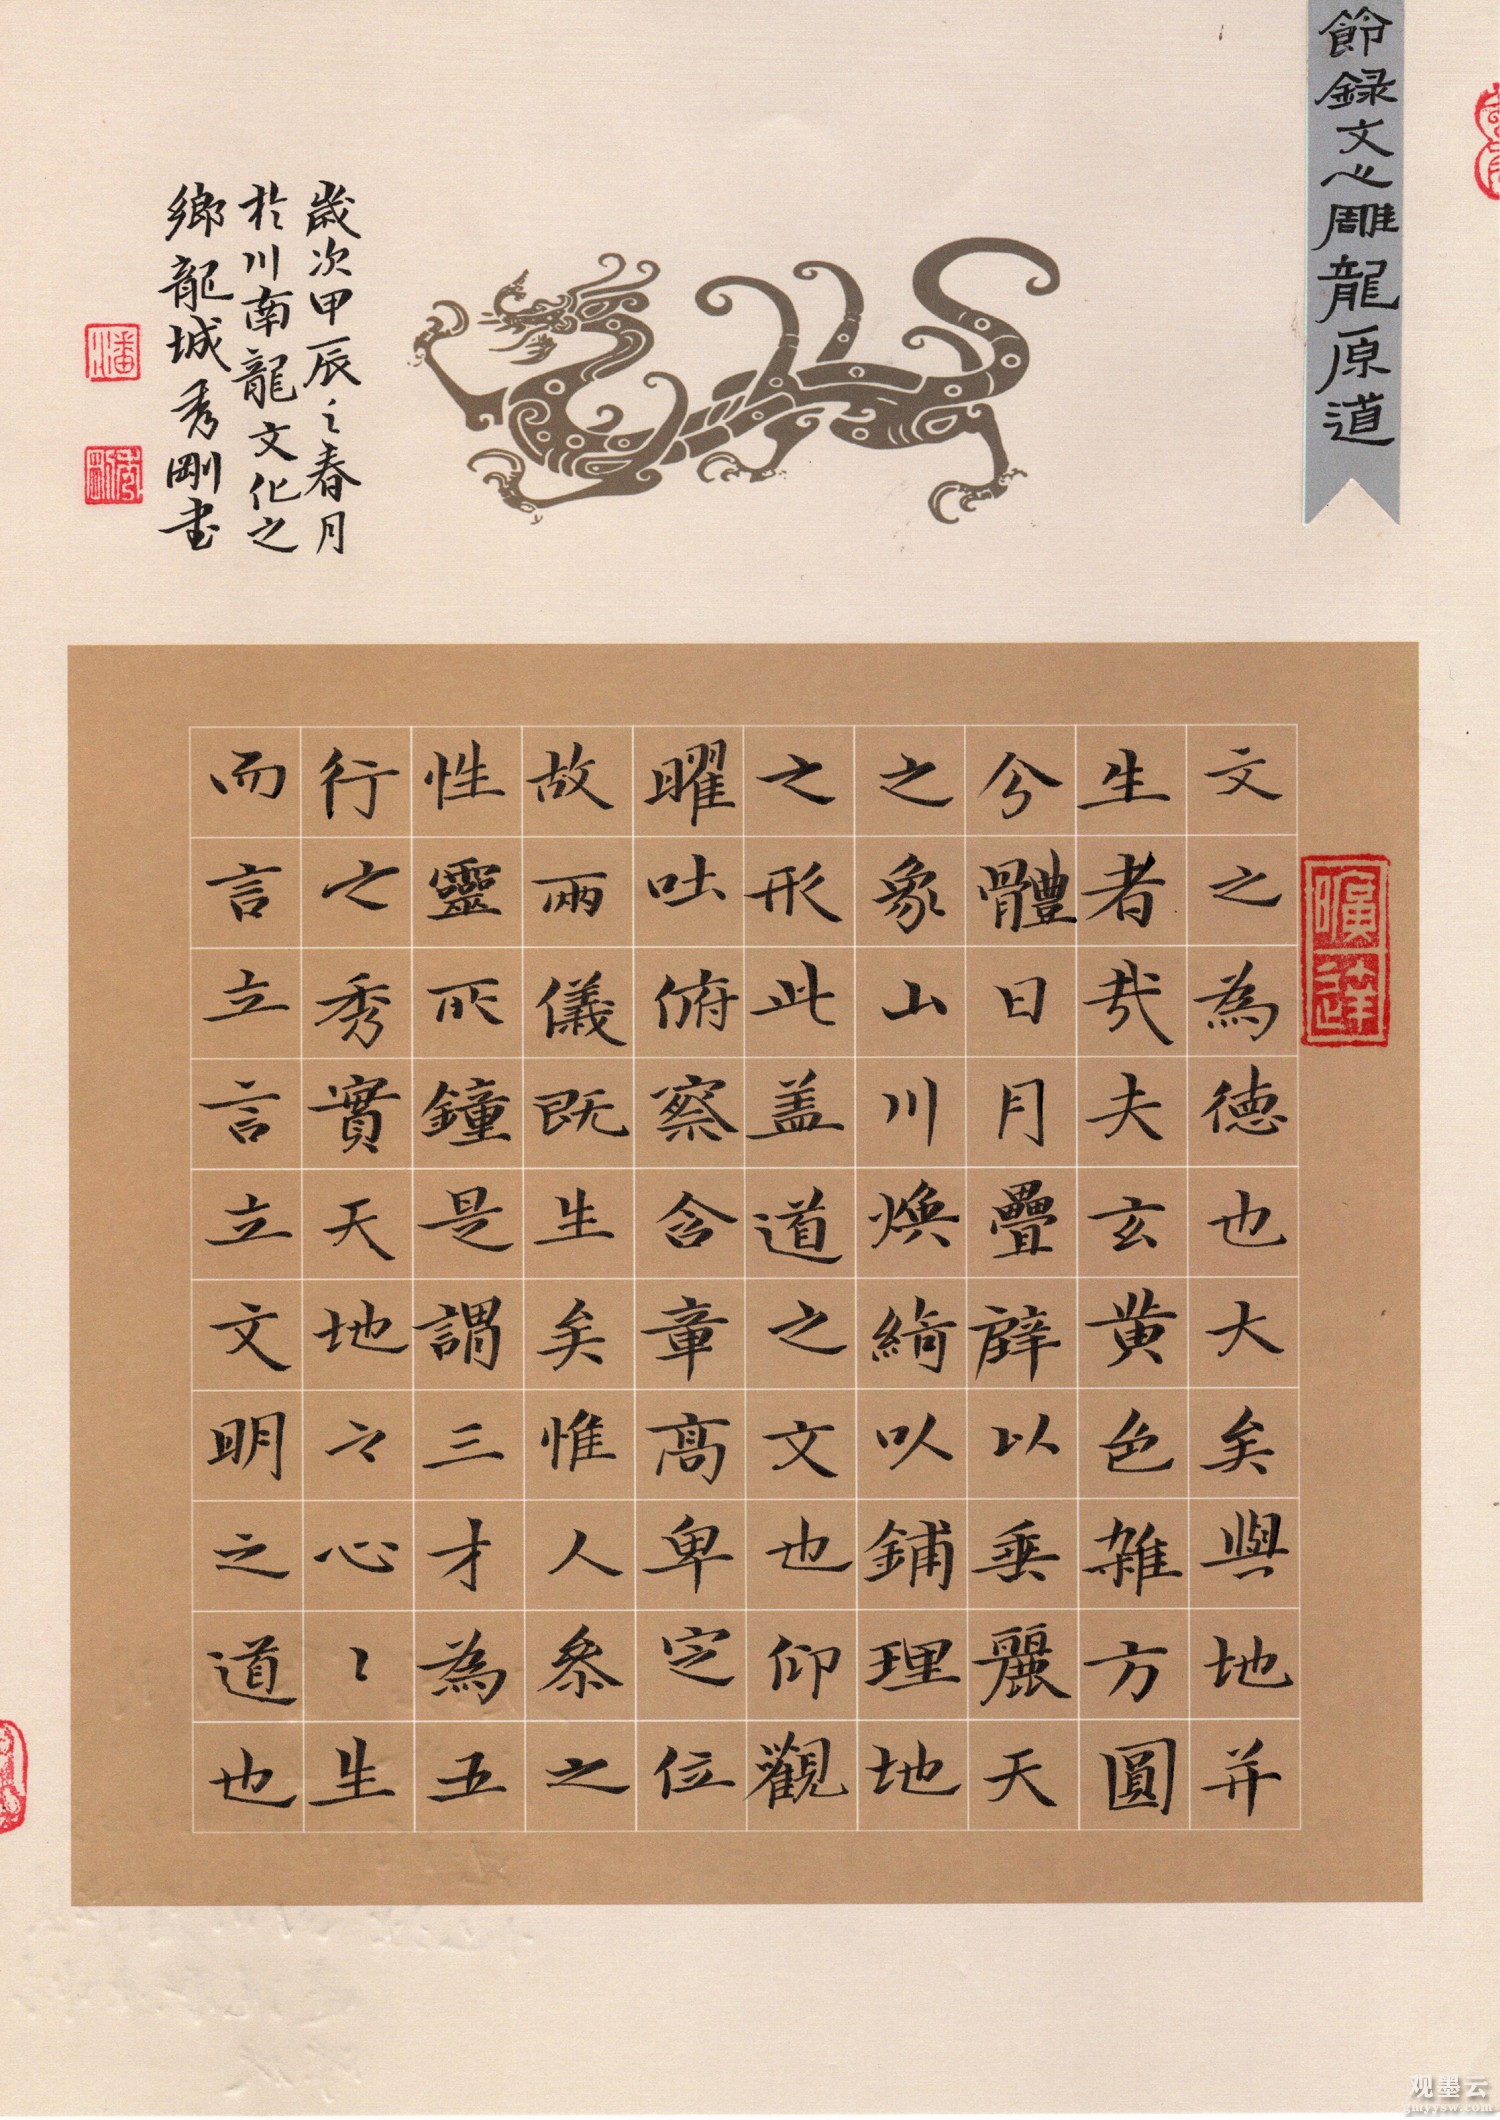 節録文心雕龍原道
文之為德也大矣與地并
生者哉夫玄黄色雜方圓
兮體日月疊辟以垂麗天
之象山川焕綺以鋪理地
之形此盖道之文也仰觀
曜吐俯察含章高卑定位
故兩儀既生矣惟人叅之
性靈所鐘是謂三才為五
行之秀實天地之心〻生
而言立言立文明之道也
歲次甲辰之春月
於川南龍文化之
鄉龍城秀剛书
曠達
观墨云
gmyysw.com